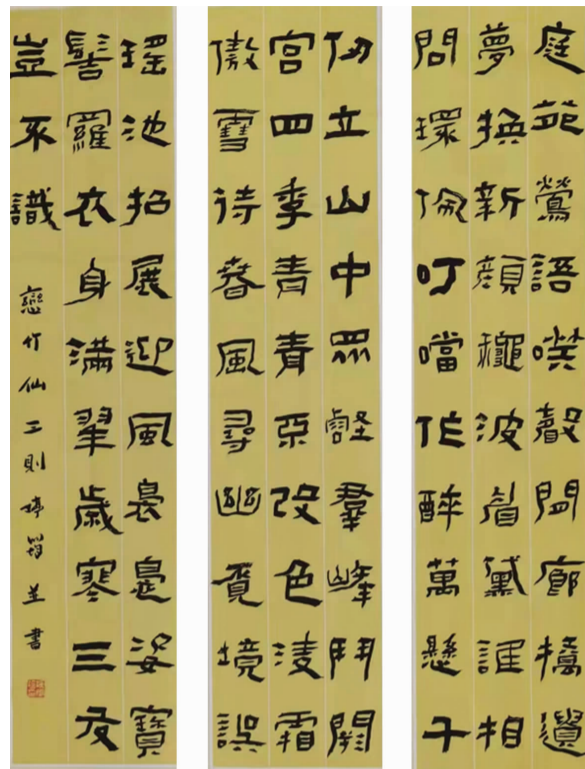 庭苑鶯語聲廊
夢換新顏波眉黛誰相
問環佩叮噹作醉萬懸千
仞立山中眾壑羣峰鬥
宮四季青青改色凌霜
傲雪待春風尋幽覓境誤
瑤池招展迎風裊裊姿寶
髻羅衣身滿翠歲寒三友
豈不識
戀竹仙 則婷並書